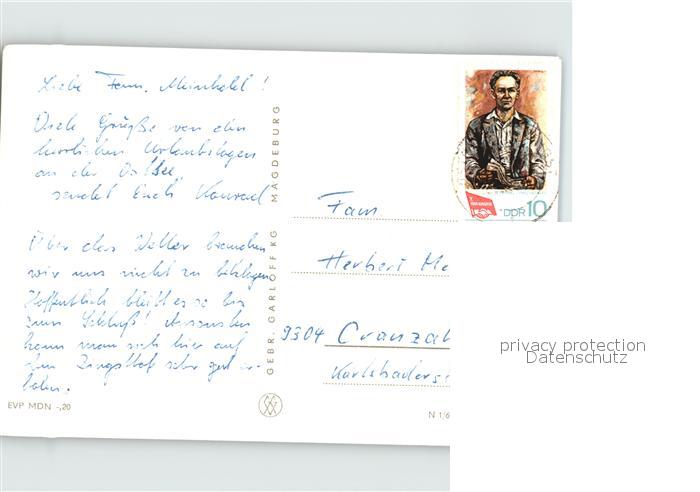 Liebe Fam. Meinhold!
Viele Grüße von den
herrlichen Urlaubstagen
an der Ostsee,
sendet Euch Konrad
Über das Wetter brauchen
wir uns nicht zu beklagen
Hoffentlich bleibt es so bis
zum Schluß! Ansonsten
kann man sich hier auf
dem Zingsthof sehr gut er-
holen.
EVP MDN -,20
GEBR. GARLOFF KG MAGDEBURG
DDR 10
Fam.
Herbert Me
9304 Cranzahl
Karlsbaders
N 1/6
privacy protection
Datenschutz